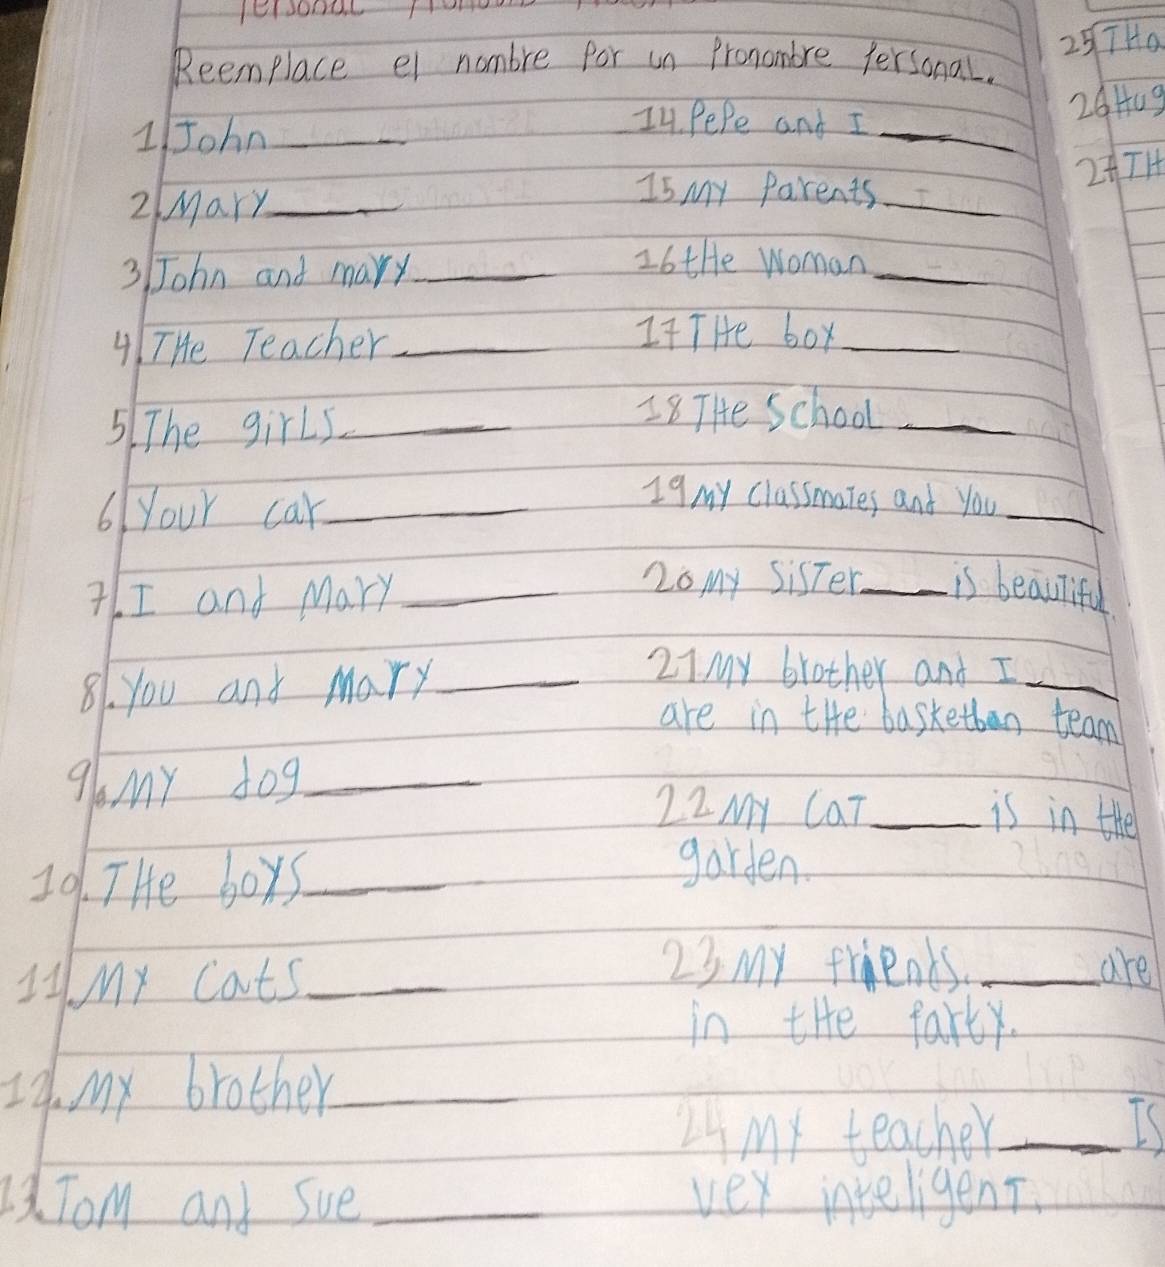 Personal
Reemplace el nombre por un Pronombre Personal.
1. John ______
2. Mary ______
3. John and mary ______
4. THe Teacher ______
5. The girls ______
6. Your car ______
7. I and Mary ______
8. You and Mary ______
9. MY dog ______
10. THe boys ______
11. MY Cats ______
12. MY brother ______
13. TOM and Sue ______
14. PePe and I ______
15 MY Parents ______
16 tHe Woman ______
17 THe boy ______
18 THe School ______
19 MY Classmates and You ______
20 MY SisTer ______ is beauTiful.
21 MY brother and I ______
are in tHe basketban team
22 MY CaT ______ is in tHe
garden.
23 MY friends. ______ are
in tHe party.
24 MY teacher ______ IS
vey inteligenT.
25 THa
26 Hug
27 TH